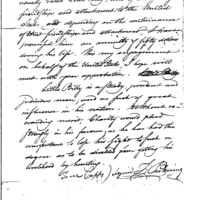 friendship and attachment to the United
States, and depending on the continuance
of that friendship and attachment, I have
promised him an annuity of fifty dollars
during his life. This my engagement
on behalf of the United States, I hope will
meet with your approbation.
Little Billy is a steady, prudent and
judicious man, and as such of great
influence in his nation. Without re-
warding merit, Charity would plead
strongly in his favour; as he has had the
misfortune to lose his sight to such a
degree as to be deprived from getting his
livelihood by hunting.
(True Copy)